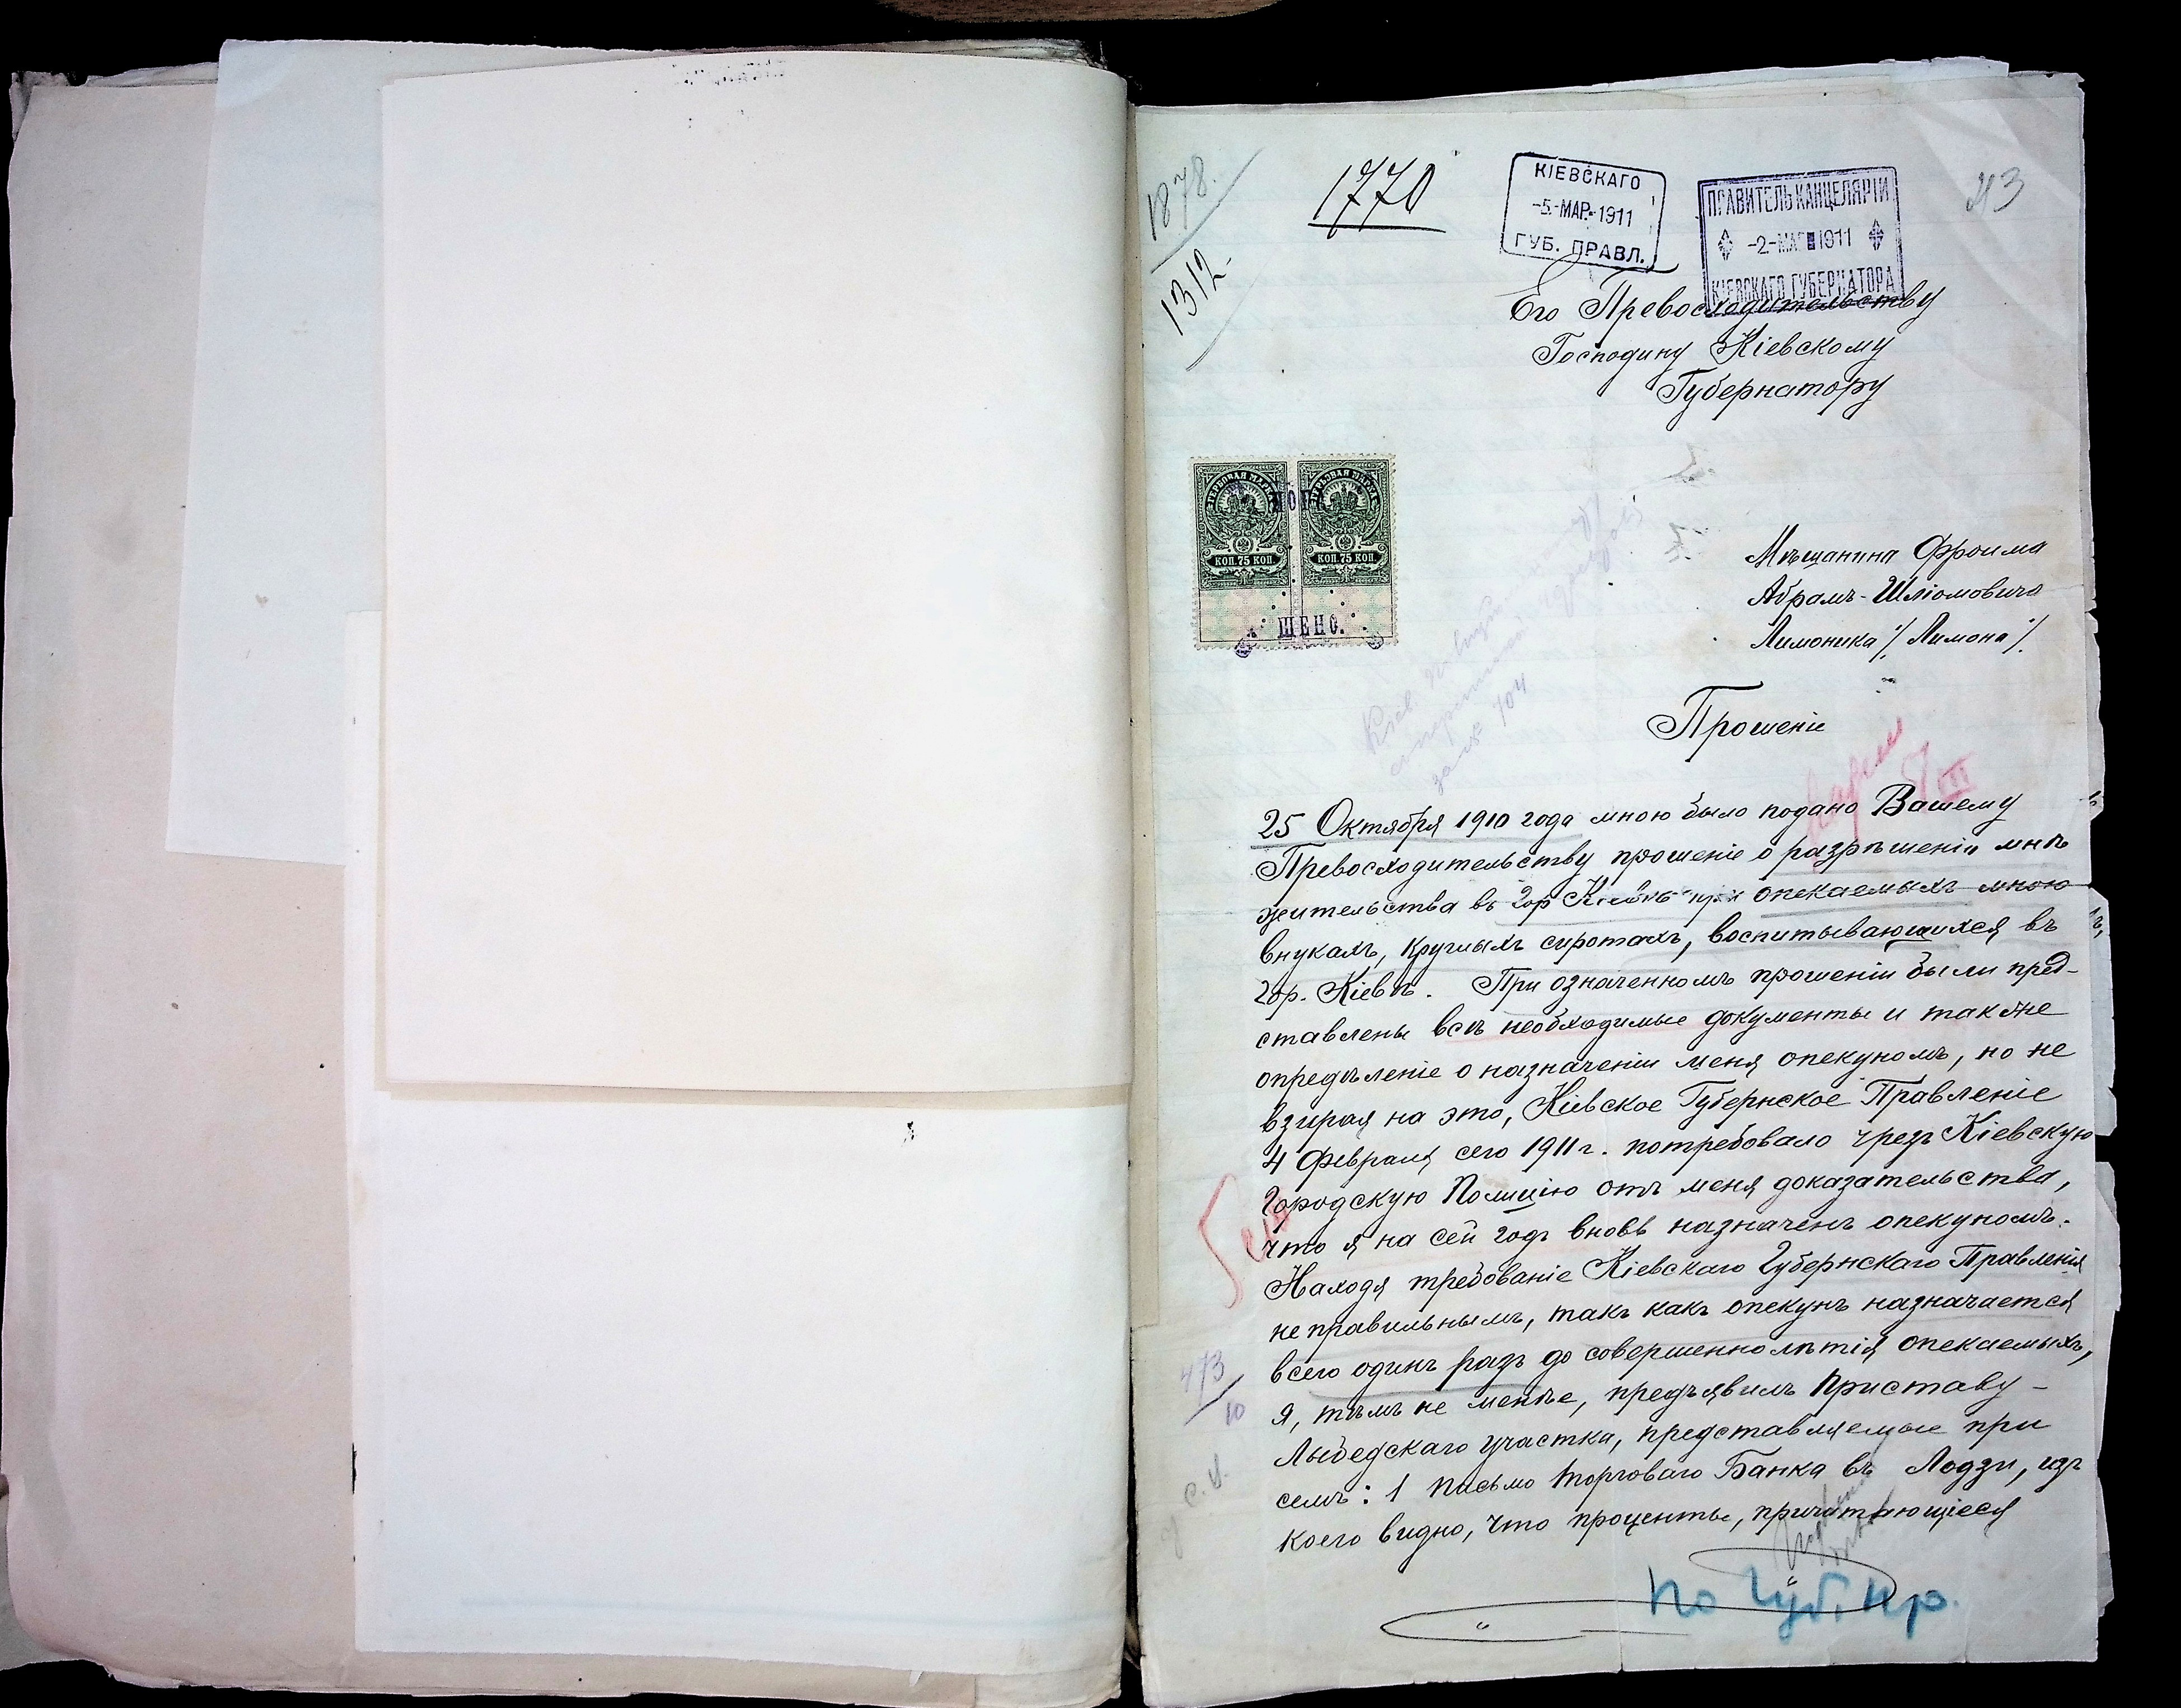 1878.
1312
1770
КІЕВСКАГО
-5.-МАР.-1911
ГУБ. ПРАВЛ.
ПРАВИТЕЛЬ КАНЦЕЛЯРІИ
-2-МАР 1911
КІЕВСКАГО ГУБЕРНАТОРА
Его Превосходительству
Господину Кіевскому
Губернатору
ГЕРБОВАЯ МАРКА ГЕРБОВАЯ МАРКА
КОП. 75 КОП. КОП. 75 КОП.
ШЕНО.
Мѣщанина Фроима
Абрамъ-Шліомовича
Лимоника /Лимона/.
Прошеніе
25 Октября 1910 года мною было подано Вашему
Превосходительству прошеніе о разрѣшеніи мнѣ
жительства въ гор Кіевѣ при опекаемыхъ мною
внукахъ, круглыхъ сиротахъ, воспитывающихся въ
гор. Кіевѣ. При означенномъ прошеніи были пред-
ставлены всѣ необходимые документы и также
опредѣленіе о назначеніи меня опекуномъ, но не
взирая на это, Кіевское Губернское Правленіе
4 Февраля сего 1911 г. потребовало чрезъ Кіевскую
Городскую Полицію отъ меня доказательства,
что я на сей годъ вновь назначенъ опекуномъ.
Находя требованіе Кіевскаго Губернскаго Правленія
не правильнымъ, такъ какъ опекунъ назначается
всего одинъ разъ до совершеннолѣтія опекаемыхъ,
я, тѣмъ не менѣе, предъявилъ Приставу
Лыбедскаго участка, представляемые при
семъ: 1 Письмо Торговаго Банка въ Лодзи, изъ
коего видно, что проценты, причитающіеся
473
10
По Губ. Пр.